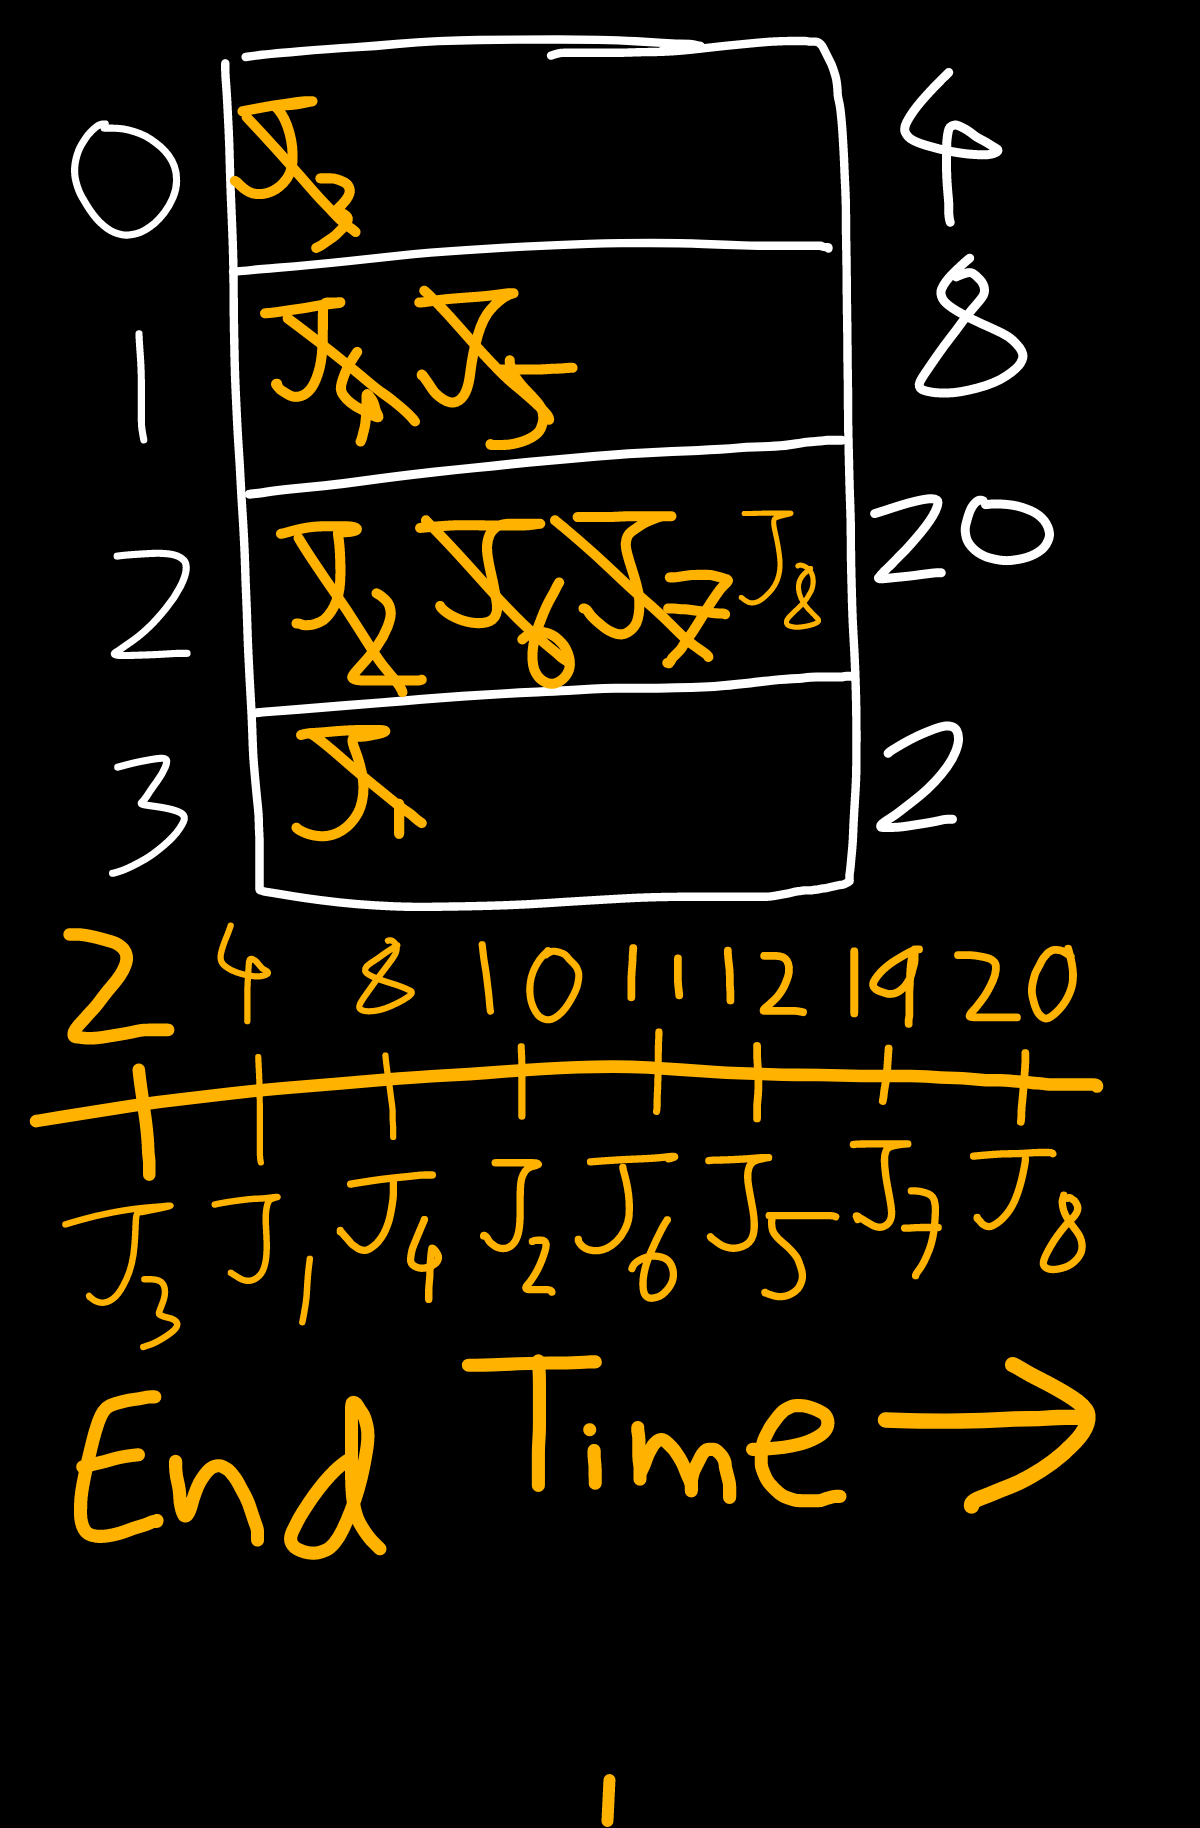 0 J3 4
1 J4 J5 8
2 J2 J6 J7 J8 20
3 J1 2
2 4 8 10 11 12 19 20
J3 J1 J4 J2 J6 J5 J7 J8
End Time →